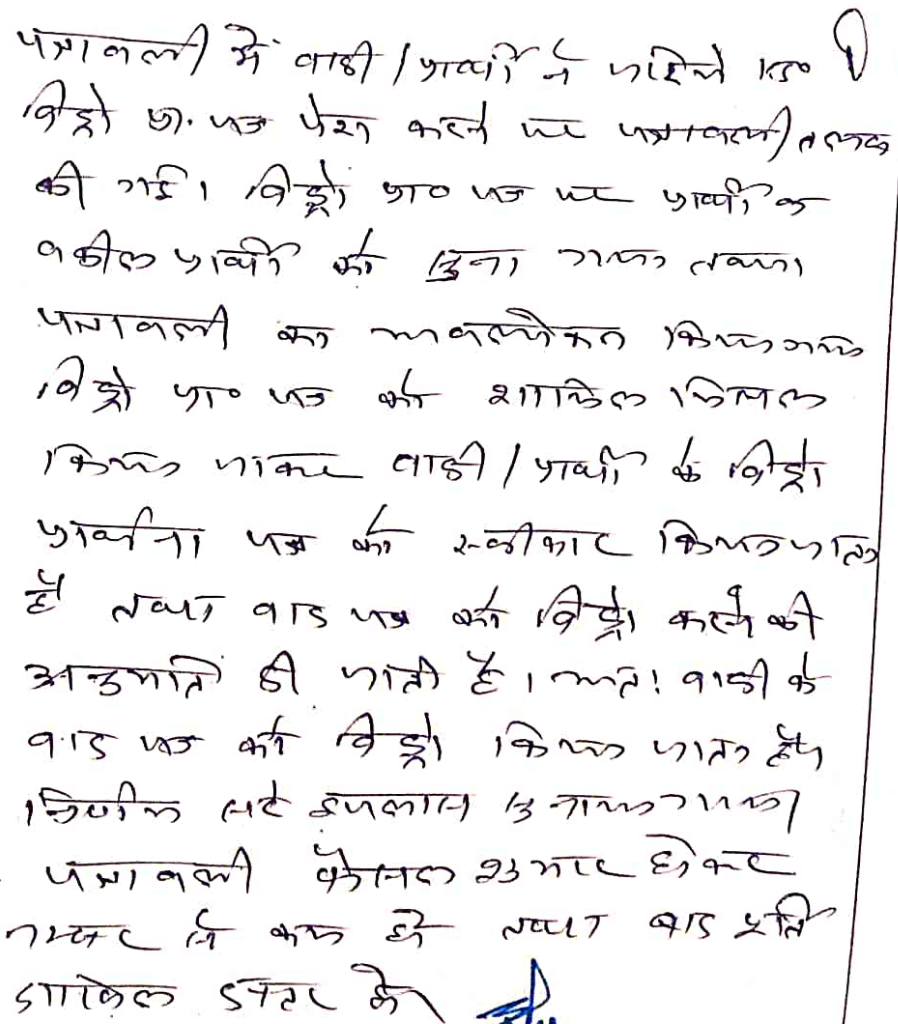 पत्रावली में वादी / प्रार्थी ने
विड्रो प्रा. पत्र पेश करने पर पत्रावली तलब
की गई। विड्रो प्रा० पत्र पर प्रार्थी के
वकील प्रार्थी को सुना गया तथा
पत्रावली का अवलोकन किया गया
विड्रो प्रा० पत्र को शामिल मिसल
किया जाकर वादी / प्रार्थी के विड्रो
प्रार्थना पत्र को स्वीकार किया जाता
है तथा वाद पत्र को विड्रो करने की
अनुमति दी जाती है। अतः वादी के
वाद पत्र को विड्रो किया जाता है।
निर्णय सरे इजलास सुनाया गया।
पत्रावली फैसल शुमार होकर
नम्बर से कम हो तथा बाद पूर्ति
दाखिल दफ्तर हो।